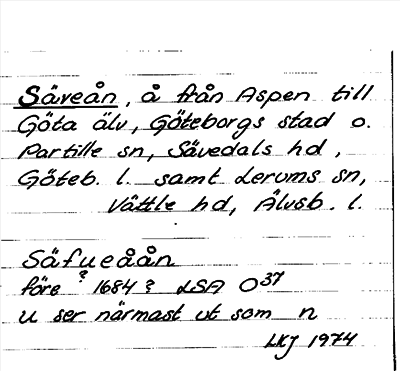 Säveån, å från Aspen till
Göta älv, Göteborgs stad o.
Partille sn, Sävedals hd,
Göteb. l. samt Lerums sn,
Vättle hd, Älvsb. l.
Säfueåån
före ? 1684 ? LSA O37
u ser närmast ut som n
LKJ 1974